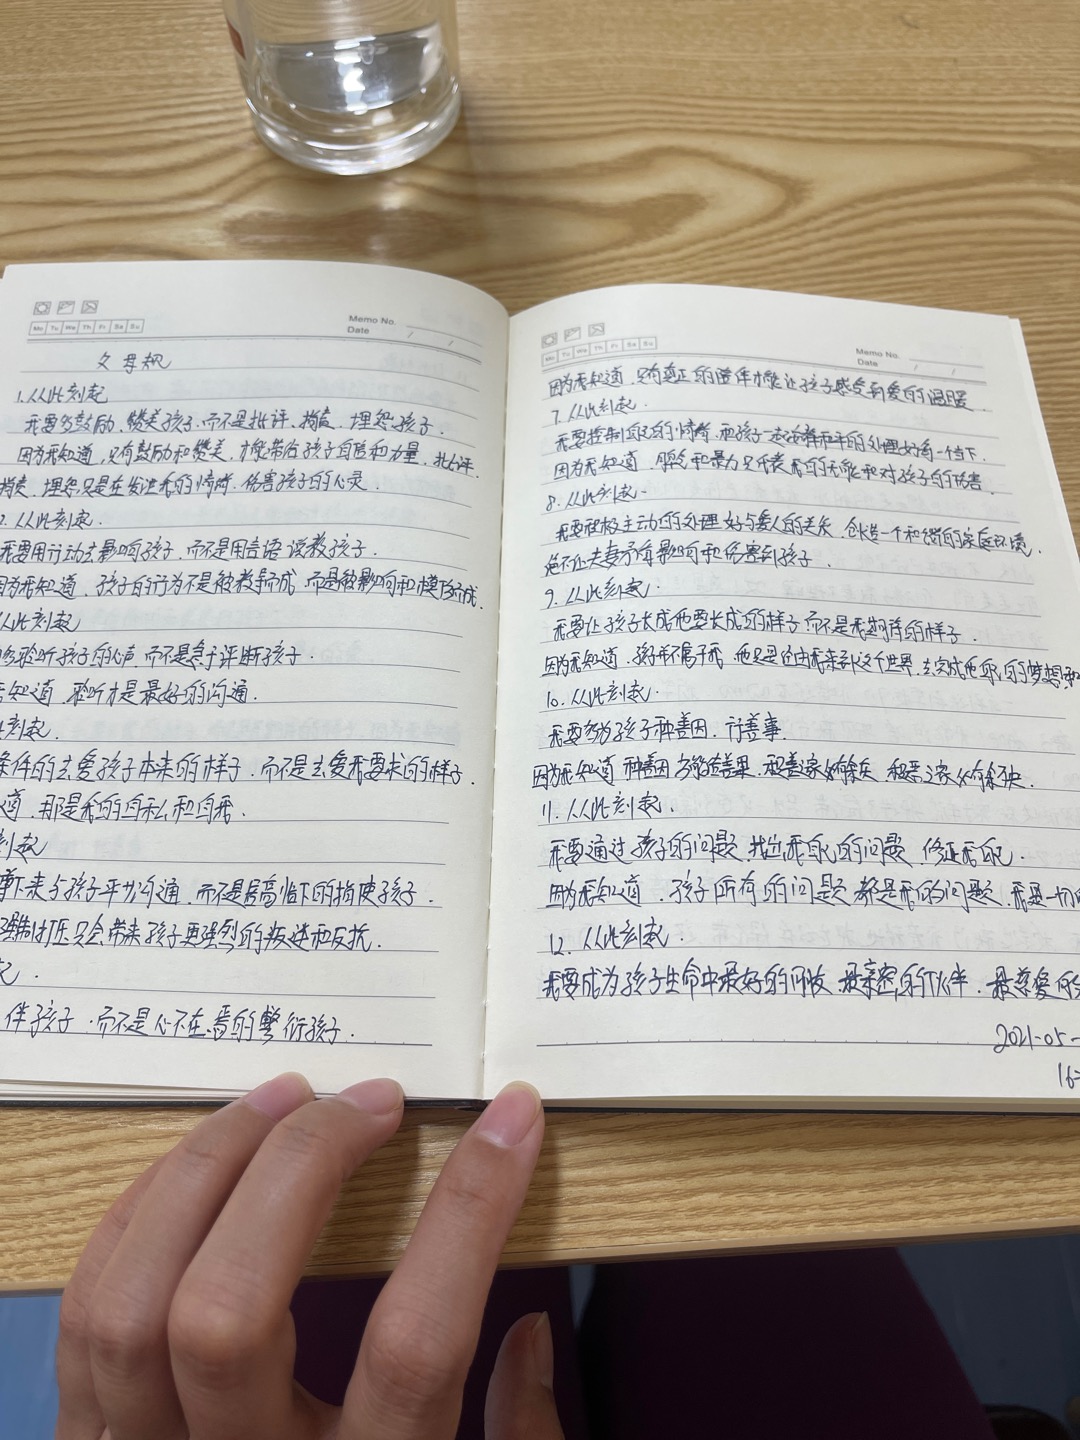 Mo Tu We Th Fr Sa Su
Memo No.
Date / /
父母规
1.从此刻起
我要多鼓励、赞美孩子.而不是批评、指责、埋怨孩子.
因为我知道,只有鼓励和赞美,才能带给孩子自信和力量,批评.
指责、埋怨只是在发泄我的情绪.伤害孩子的心灵.
2.从此刻起.
我要用行动去影响孩子.而不是用言语说教孩子.
因为我知道、孩子的行为不是被教导而成,而是被影响和模仿而成.
从此刻起
多聆听孩子的心声.而不是急于评断孩子.
知道,聆听才是最好的沟通.
刻起.
条件的去爱孩子本来的样子.而不是去爱我要求的样子.
道,那是我的自私和自我.
刻起
蹲下来与孩子平和沟通,而不是居高临下的指使孩子.
强制打压只会带来孩子更强烈的叛逆和反抗.
起.
伴孩子.而不是心不在焉的敷衍孩子.
Mo Tu We Th Fr Sa Su
Memo No.
Date / /
因为我知道,只有真正的陪伴才能让孩子感受到爱的温暖
7.从此刻起.
我要控制自己的情绪.和孩子一起 和平的处理好每一个当下.
因为我知道、 和暴力只代表我的无能和对孩子的伤害.
8.从此刻起.
我要积极主动的处理好与爱人的关系,创造一个和谐的家庭环境.
绝不让夫妻矛盾影响和伤害到孩子.
9.从此刻起.
我要让孩子长成他要长成的样子.而不是我期待的样子.
因为我知道,孩子并不属于我,他只是经由我来到这个世界.去完成他自己的梦想和
10.从此刻起.
我要多为孩子种善因、行善事.
因为我知道种善因多能结善果,积善之家必有余庆,积恶之家必有余殃.
11.从此刻起.
我要通过孩子的问题,找出我自己的问题,修正我自己.
因为我知道,孩子所有的问题都是我的问题,我是一切的
12.从此刻起.
我要成为孩子生命中最好的 最亲密的伙伴.最慈爱的
2021-05-
16